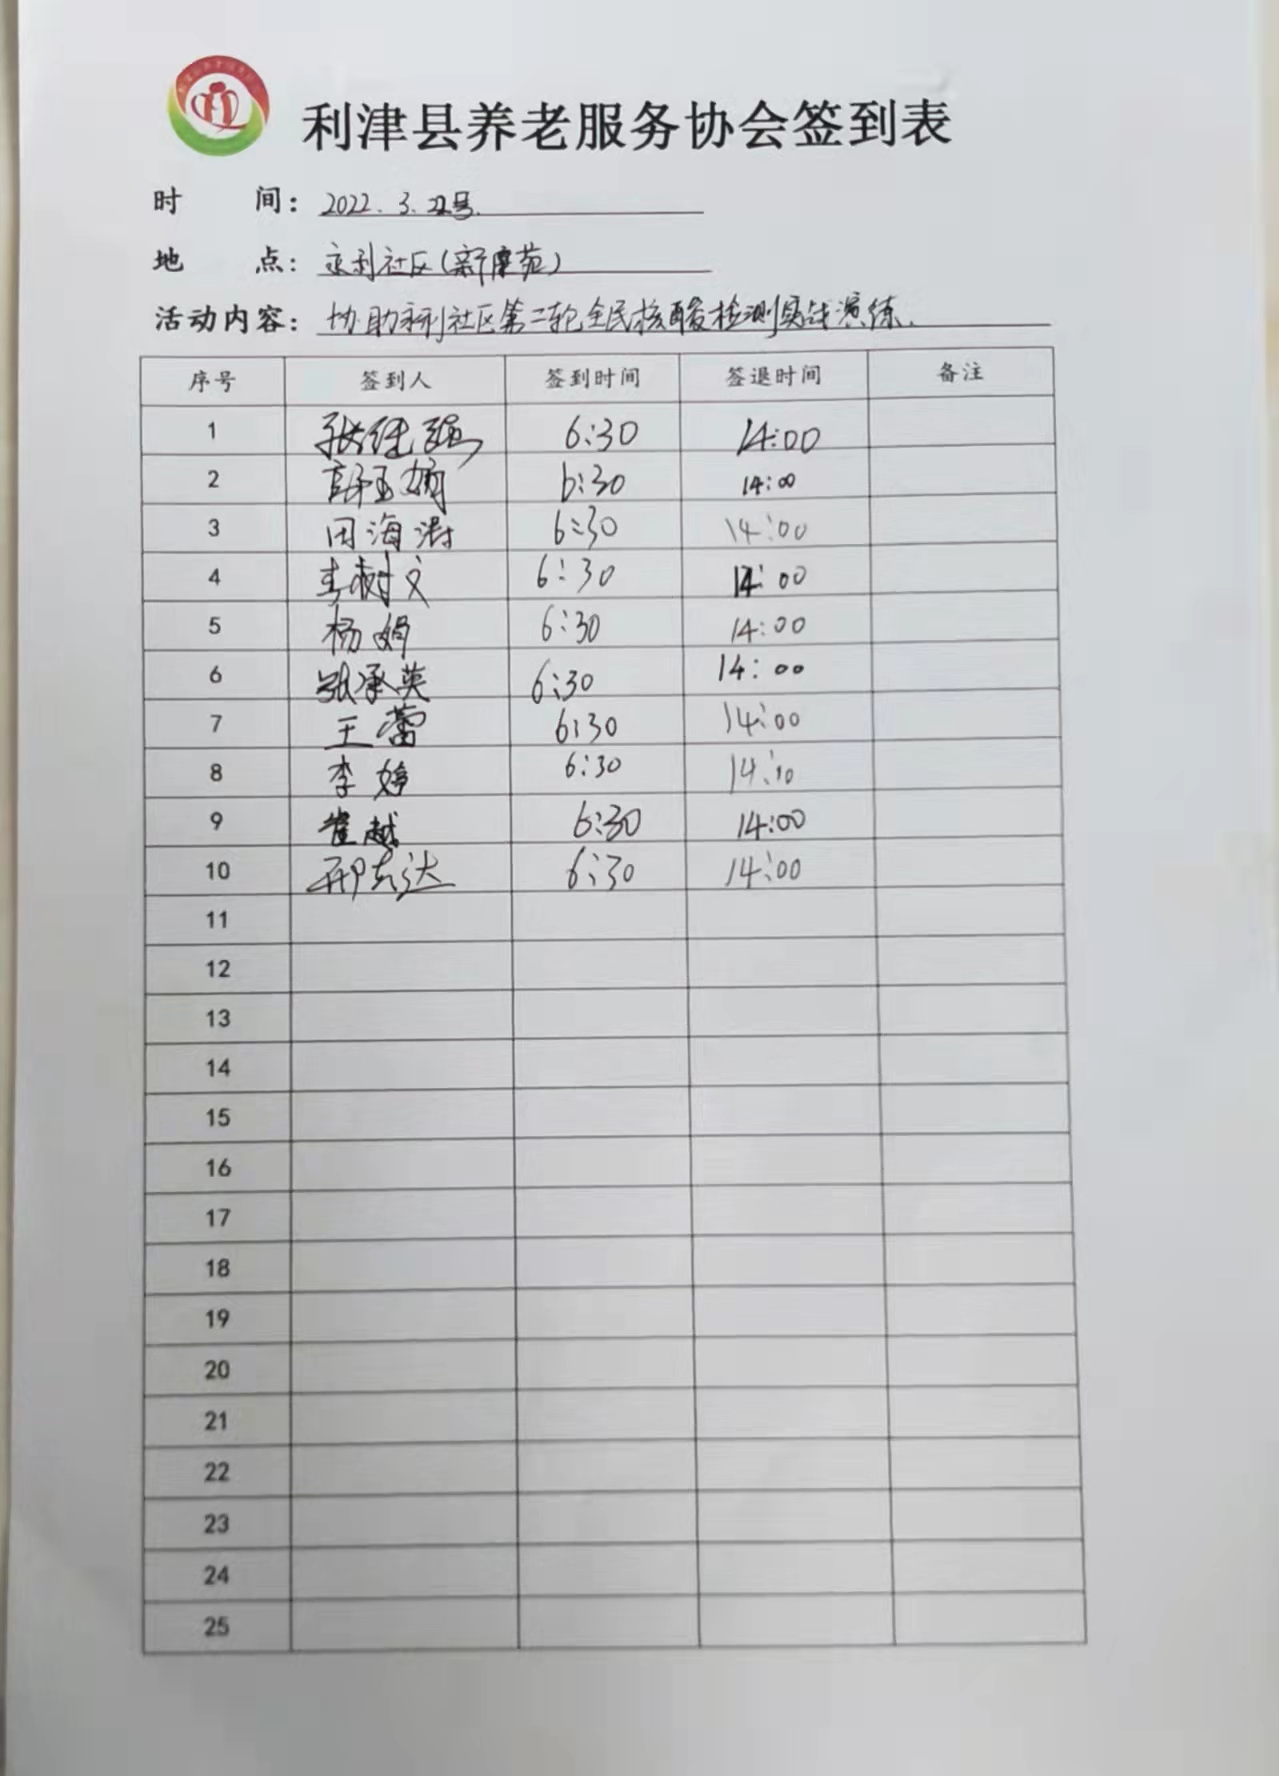 利津县养老服务协会签到表
时间：2022.3.22号.
地点：永利社区(新康苑)
活动内容：协助永利社区第二轮全民核酸检测实战演练.
序号 签到人 签到时间 签退时间 备注
1 张继强 6:30 14:00
2 6:30 14:00
3 田海澍 6:30 14:00
4 李树文 6:30 14:00
5 杨娟 6:30 14:00
6 张承英 6:30 14:00
7 王蕾 6:30 14:00
8 李婷 6:30 14:10
9 崔越 6:30 14:00
10 邢志达 6:30 14:00
11
12
13
14
15
16
17
18
19
20
21
22
23
24
25